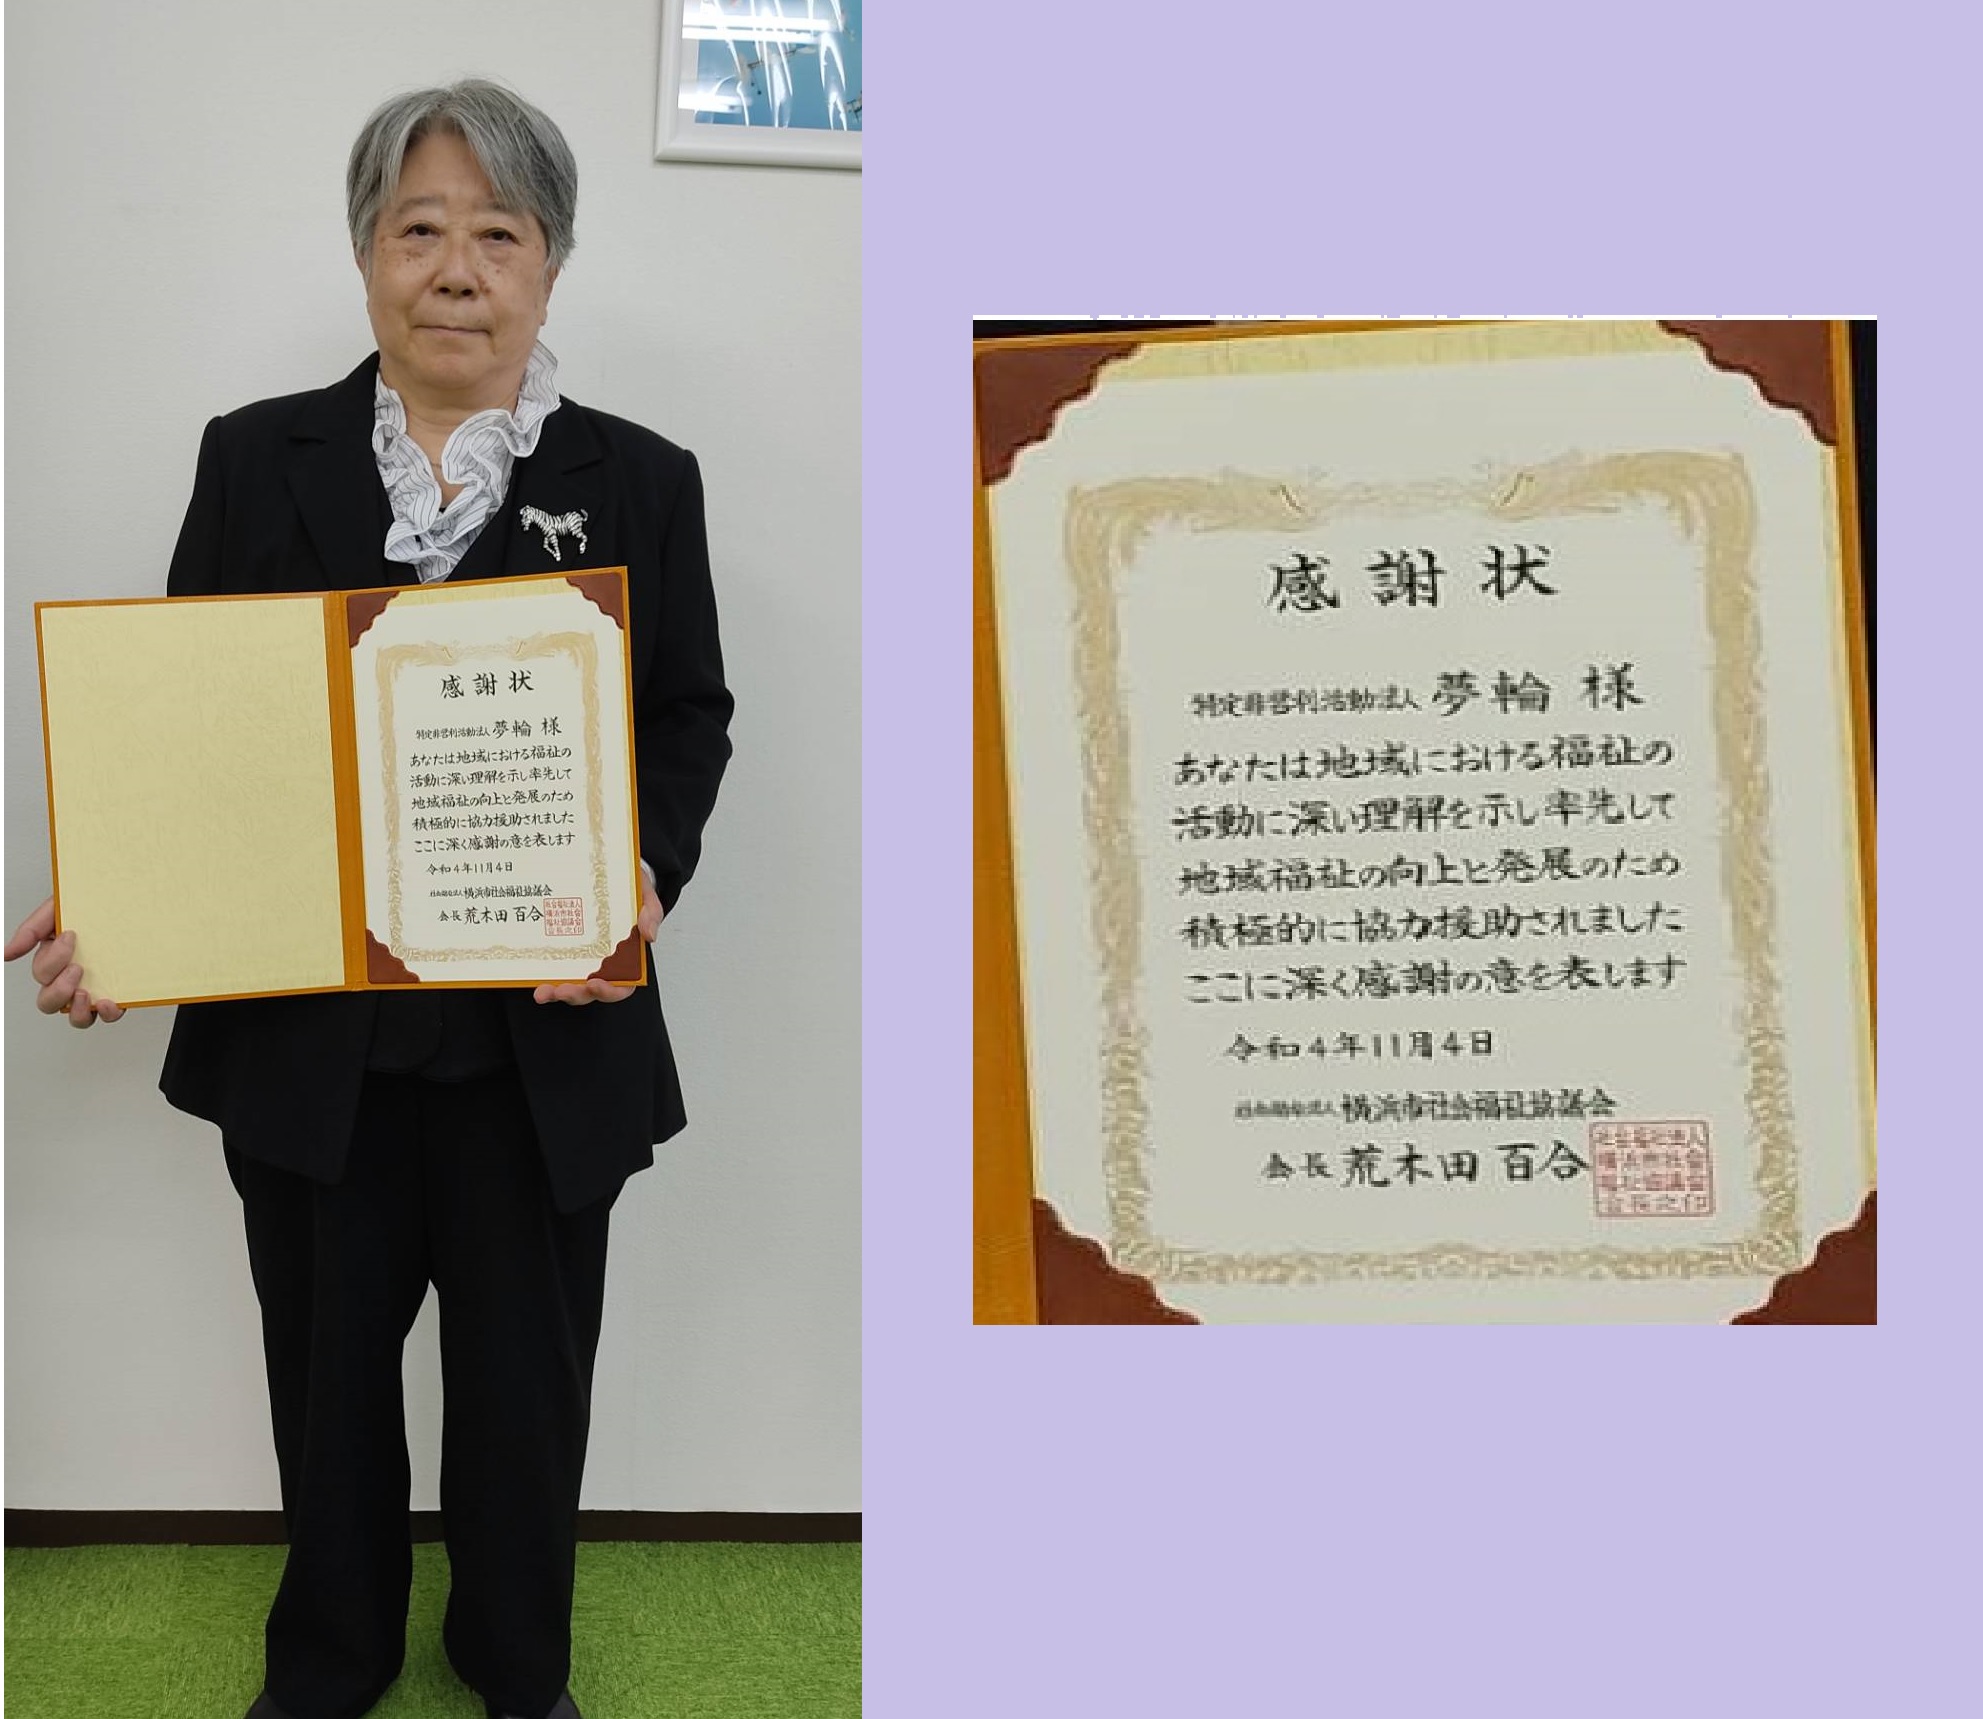 感謝状
特定非営利活動法人 夢輪 様
あなたは地域における福祉の
活動に深い理解を示し率先して
地域福祉の向上と発展のため
積極的に協力援助されました
ここに深く感謝の意を表します
令和4年11月4日
社会福祉法人 横浜市社会福祉協議会
会長 荒木田 百合
社会福祉法人
横浜市社会
福祉協議会
会長之印
感謝状
特定非営利活動法人 夢輪 様
あなたは地域における福祉の
活動に深い理解を示し率先して
地域福祉の向上と発展のため
積極的に協力援助されました
ここに深く感謝の意を表します
令和4年11月4日
社会福祉法人 横浜市社会福祉協議会
会長 荒木田 百合
社会福祉法人
横浜市社会
福祉協議会
会長之印